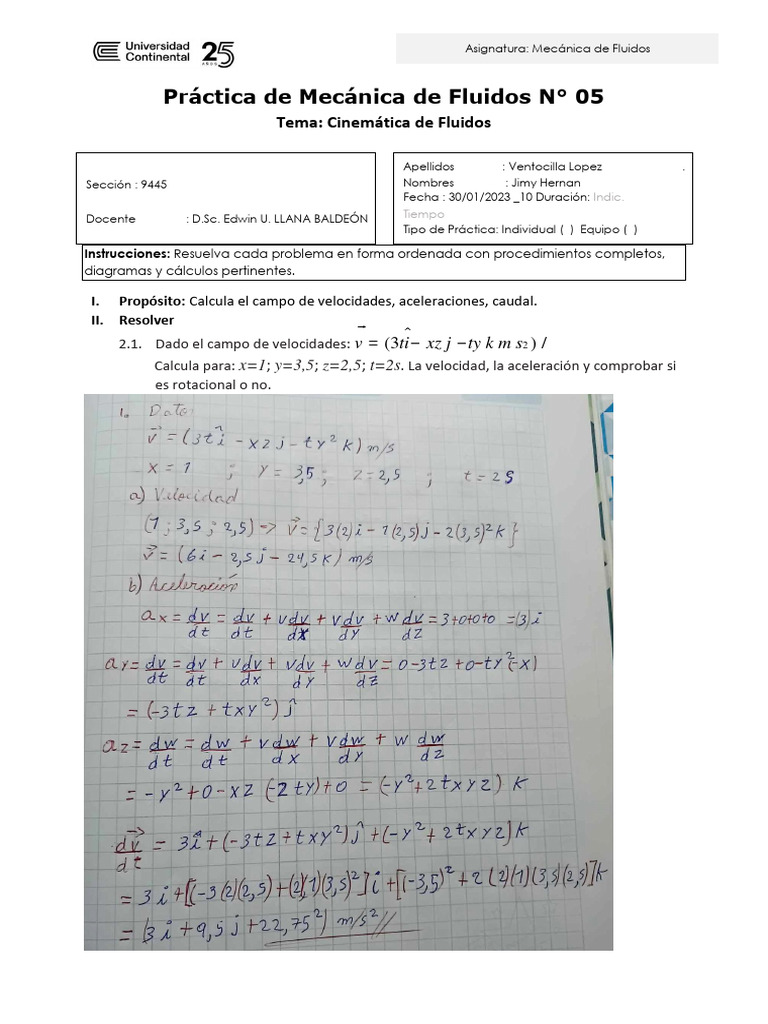 Universidad
Continental
25
AÑOS
Asignatura: Mecánica de Fluidos
Práctica de Mecánica de Fluidos N° 05
Tema: Cinemática de Fluidos
Sección : 9445
Docente : D.Sc. Edwin U. LLANA BALDEÓN
Apellidos : Ventocilla Lopez .
Nombres : Jimy Hernan
Fecha : 30/01/2023 _10 Duración: Indic.
Tiempo
Tipo de Práctica: Individual ( ) Equipo ( )
Instrucciones: Resuelva cada problema en forma ordenada con procedimientos completos,
diagramas y cálculos pertinentes.
I. Propósito: Calcula el campo de velocidades, aceleraciones, caudal.
II. Resolver
2.1. Dado el campo de velocidades: v⃗ = (3tî − xz j − ty k m s2 ) /
Calcula para: x=1; y=3,5; z=2,5; t=2s. La velocidad, la aceleración y comprobar si
es rotacional o no.
1. Dato:
v⃗ = (3tî − xzj − ty² k) m/s
x = 1 ; y = 3,5 ; z = 2,5 ; t = 2s
a) Velocidad
(1 ; 3,5 ; 2,5) => v⃗ = {3(2)i − 1(2,5)j − 2(3,5)²k}
v⃗ = (6i − 2,5j − 24,5k) m/s
b) Aceleración
ax = dv/dt = dv/dt + vdv/dx + vdv/dy + wdv/dz = 3+0+0+0 = (3)i
ay = dv/dt = dv/dt + vdv/dx + vdv/dy + wdv/dz = 0−3tz+0−ty²(−x)
= (−3tz + txy²)ĵ
az = dw/dt = dw/dt + vdw/dx + vdw/dy + w dw/dz
= −y²+0−xz (−2ty)+0 = (−y²+2txyz) k
dv⃗/dt = 3î+(−3tz+txy²)ĵ+(−y²+2txyz)k
= 3i+[(−3(2)(2,5)+(2)(1)(3,5)²]i+[(−3,5)²+2(2)(1)(3,5)(2,5)]k
= (3i+9,5j+22,75²) m/s²//